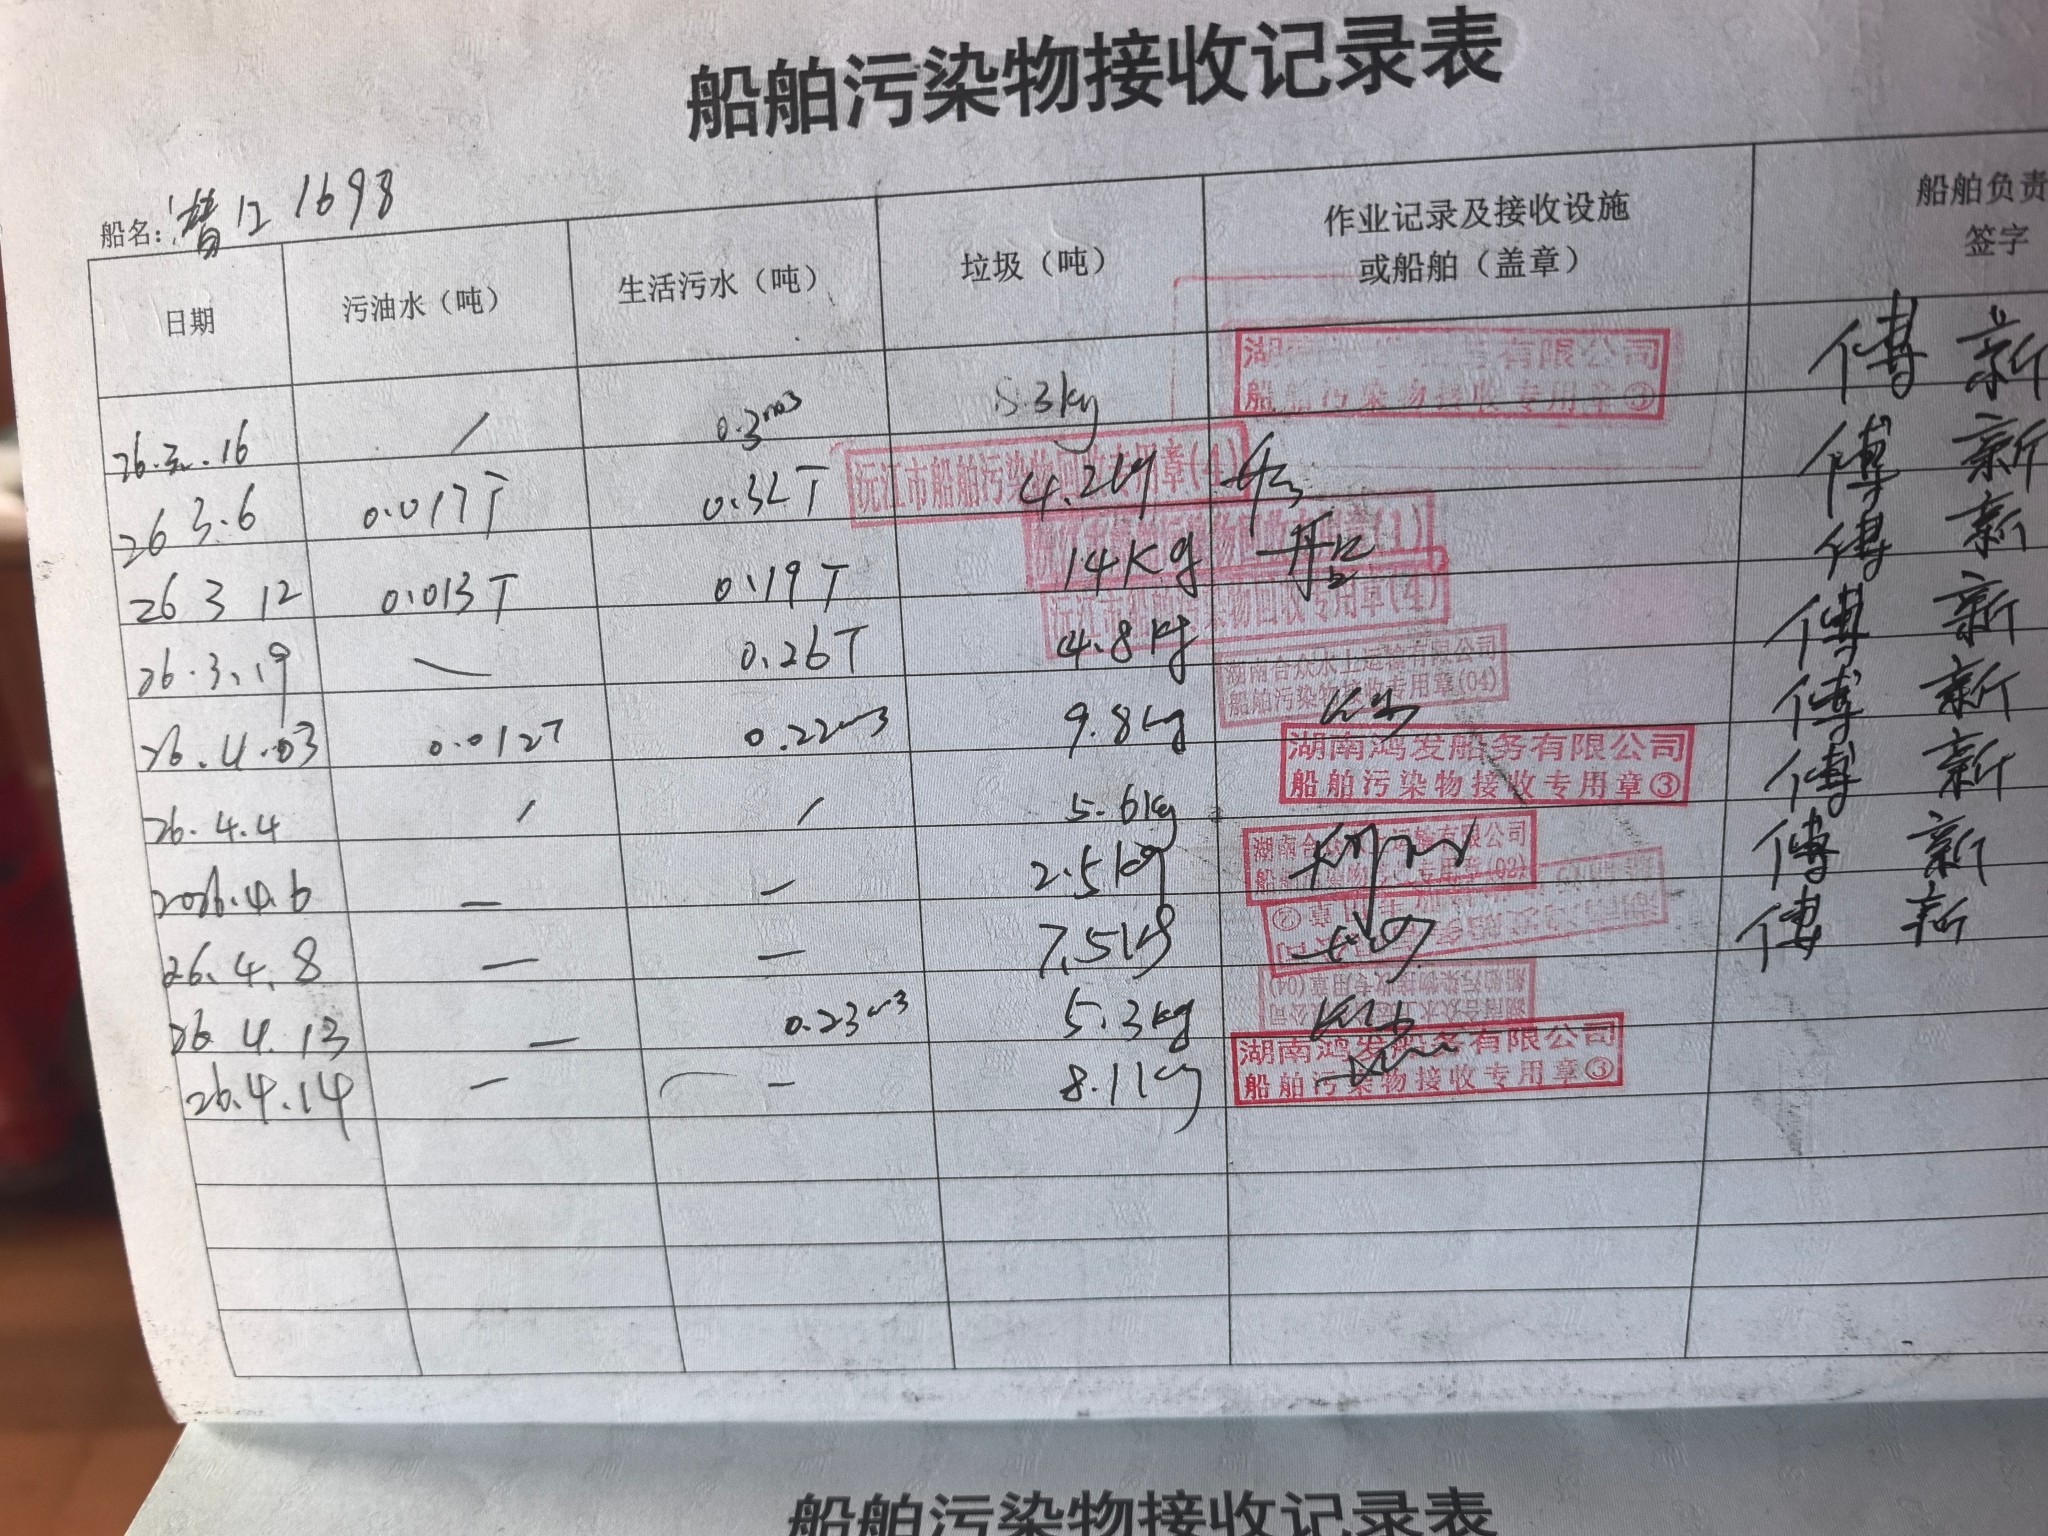 船舶污染物接收记录表
船名: 1698
日期 污油水（吨） 生活污水（吨） 垃圾（吨） 作业记录及接收设施或船舶（盖章） 船舶负责 签字
26.3..16 / 0.3m3 5.3kg 湖 有限公司 船舶污染物接收专用章③ 傅新
26 3.6 0.017T 0.32T 沅江市船舶污染物回收专用章(4) 4.2kg 傅新
26 3 12 0.013T 0.19T 14Kg 回收专用章(1) 傅新
26.3.19 — 0.26T 沅江市船舶污染物回收专用章(4) 4.8kg 傅新
26.4.03 0.012T 0.22m3 9.8kg 湖南合众水上运输有限公司 船舶污染物接收专用章(04) 傅新
26.4.4 / / 5.6kg 湖南鸿发船务有限公司 船舶污染物接收专用章③ 傅新
2026.4.6 — — 2.5kg 湖南合众 运输有限公司 专用章 傅新
26.4.8 — — 7.5kg 傅新
26.4.13 — 0.23m3 5.3kg 船舶污染物接收专用章(04)
26.4.14 — — 8.1kg 湖南鸿发船务有限公司 船舶污染物接收专用章③
船舶污染物接收记录表